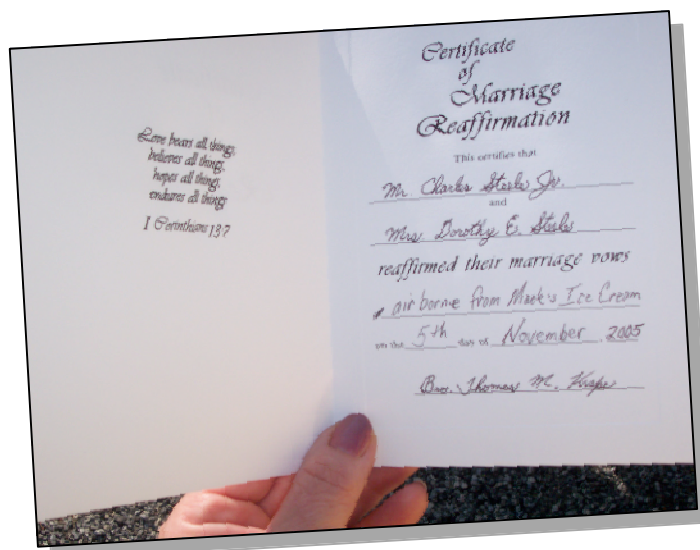 Love bears all things,
believes all things,
hopes all things,
endures all things
1 Corinthians 13:7
Certificate
of
Marriage
Reaffirmation
This certifies that
Mr. Charles Steele Jr.
and
Mrs. Dorothy E. Steele
reaffirmed their marriage vows
air borne from Mark's Ice Cream
on the 5th day of November, 2005
Thomas M.